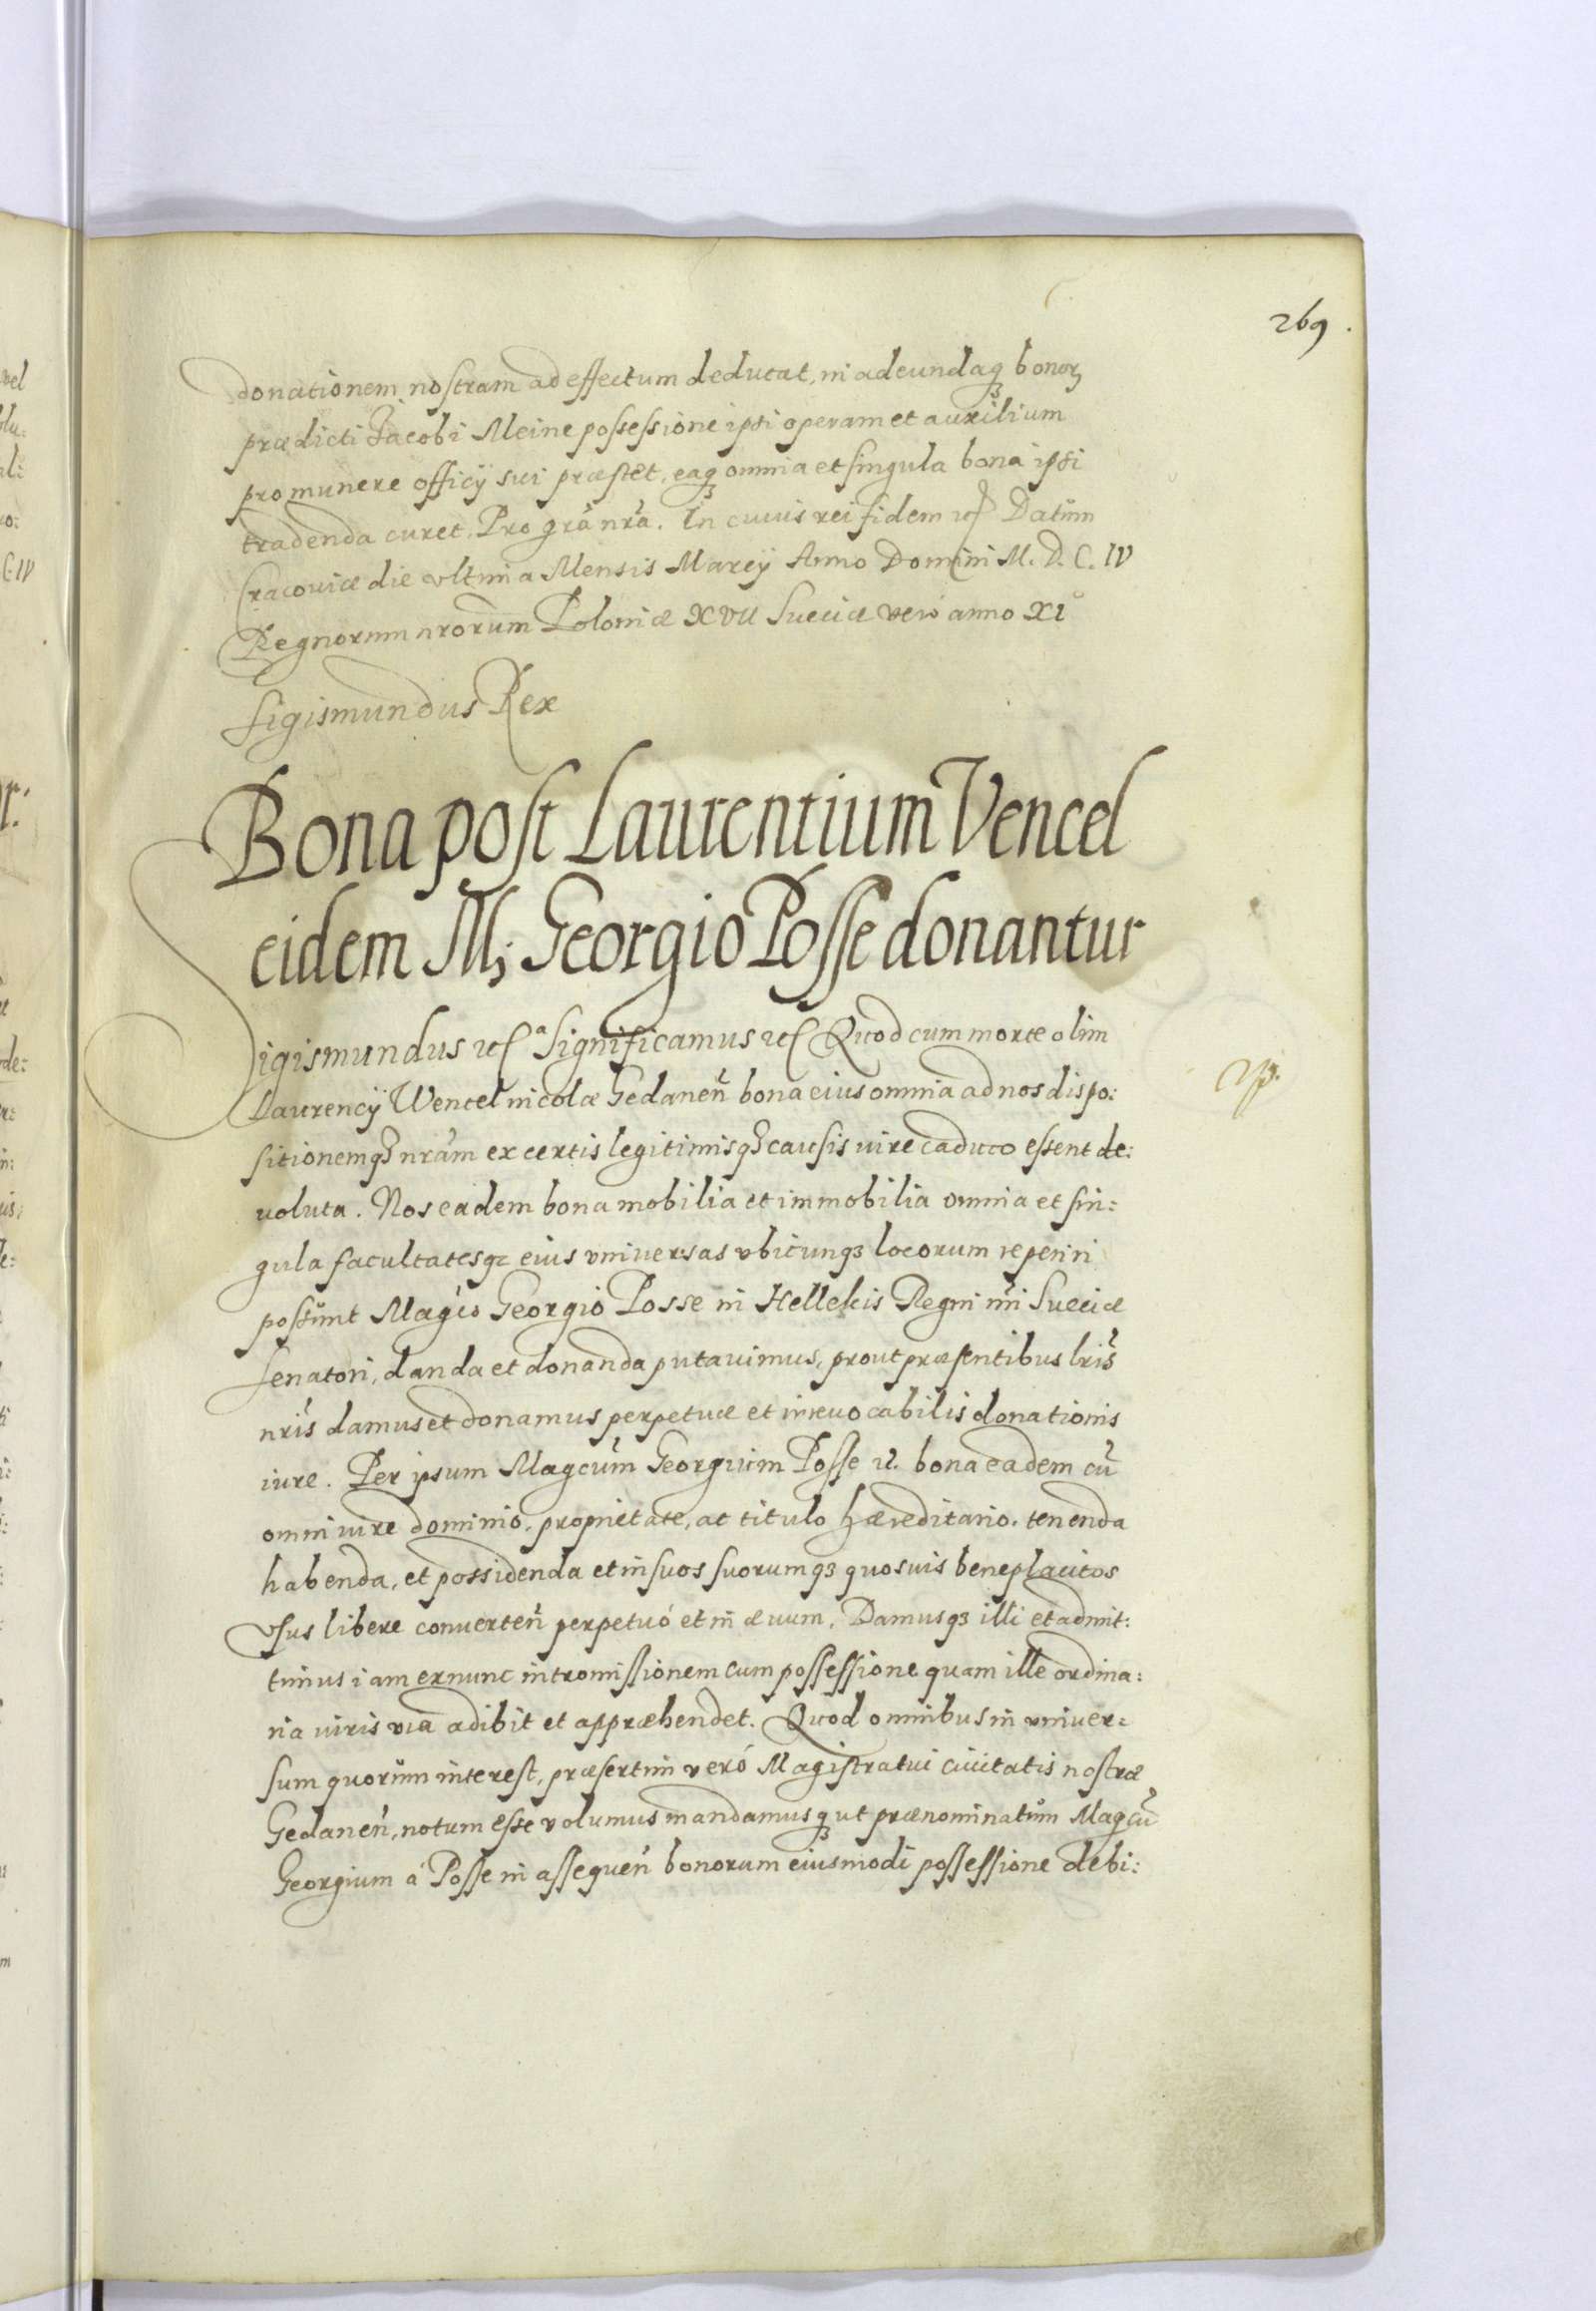 269.
donationem nostram ad effectum deducat, in adeundaq3 bonor
prædicti Jacobi Meine possessione ipsi operam et auxilium
pro munere officÿ sui præstet, eaq3 omnia et singula bona ipsi
tradenda curet. Pro grã nrã. In cuius rei fidem etc Datum
Cracouiæ die vltima Mensis Marcÿ Anno Domini M.D.C.IV
Regnorum nrorum Poloniæ XVII Sueciæ vero anno XI°
Sigismundus Rex
Bona post Laurentium Vencel
eidem M; Georgio Posse donantur
Sigismundus etc a Significamus etc Quod cum morte olim
Laurencÿ Wencel incolæ Gedaneñ bona eius omnia ad nos dispo:
sitionemq3 nrãm ex certis legitimisq3 causis iure caduco essent de:
uoluta. Nos eadem bona mobilia et immobilia omnia et sin:
gula facultatesq3 eius vniuersas vbicunq3 locorum reperiri
possunt Magco Georgio Posse in Hellekis Regni nri Sueciæ
Senatori, danda et donanda putauimus, prout præsentibus lris
nris damus et donamus perpetuæ et irreuocabilis donationis
iure. Per ipsum Magcum Georgium Posse etc. bona eadem cũ
omni iure dominio, proprietate, ac titulo hæreditario. tenenda
habenda, et possidenda et in suos suorumq3 quosuis beneplacitos
vsus libere conuerteñ perpetuó et in æuum. Damusq3 illi et admit:
timus iam exnunc intromissionem cum possessione quam ille ordina:
ria iuris via adibit et appræhendet. Quod omnibus in vniuer:
sum quorum interest, præsertim veró Magistratui ciuitatis nostræ
Gedaneñ, notum esse volumus mandamusq3 ut prænominatum Magcũ
Georgium á Posse in assequeñ bonorum eiusmodi possessione debi: